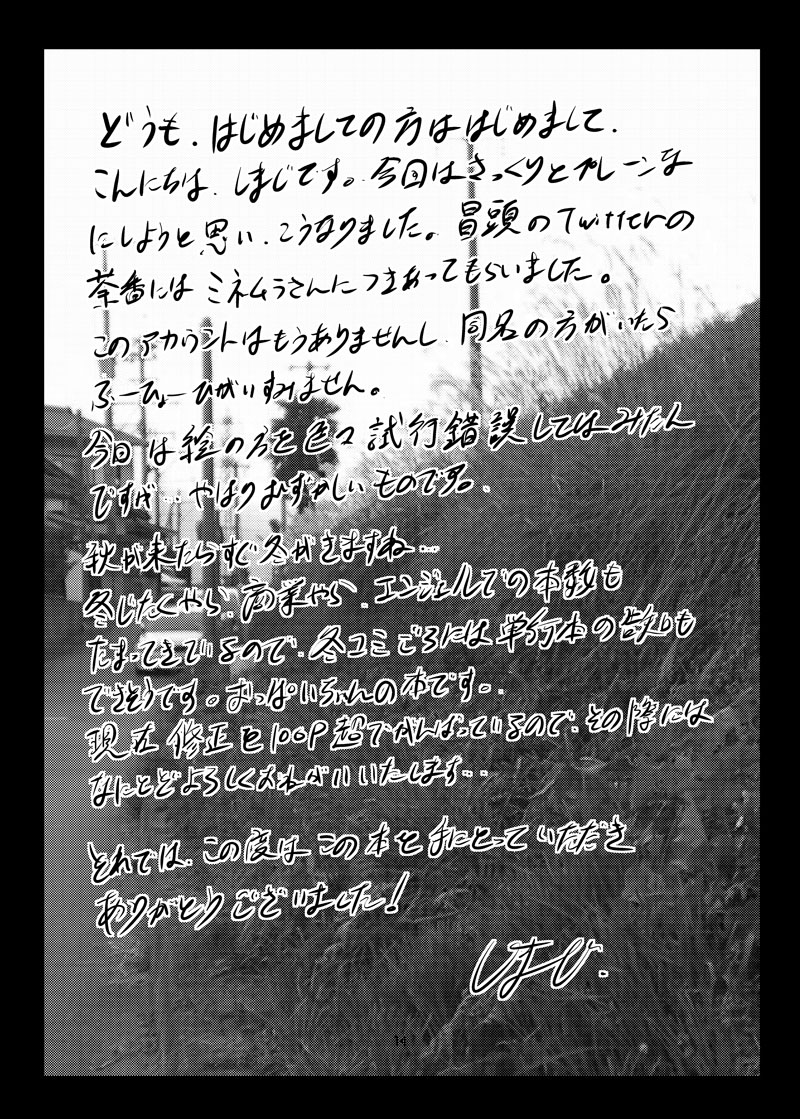 どうも、はじめましての方ははじめまして、
こんにちは、しまじです。今回はさっくりとプレーンな
にしようと思い、こうなりました。冒頭のTwitterの
茶番には ミネムラさんにつきあってもらいました。
このアカウントはもうありませんし、同名の方がいたら
ふーひょーひがいすみません。
今回は絵の方を色々試行錯誤してはみたん
ですが‥やはりむずかしいものです。
秋が来たらすぐ冬がきますね‥
冬じたくやら、商業やら、エンジェルでの本数も
たまってきているので、冬コミごろには単行本の告知も
できそうです。おっぱいちゃんの本です。
現在修正を100P超でがんばっているので、その際には
なにとぞよろしくおねがいいたします‥
それでは、この度はこの本を手にとっていただき
ありがとうございました!
14